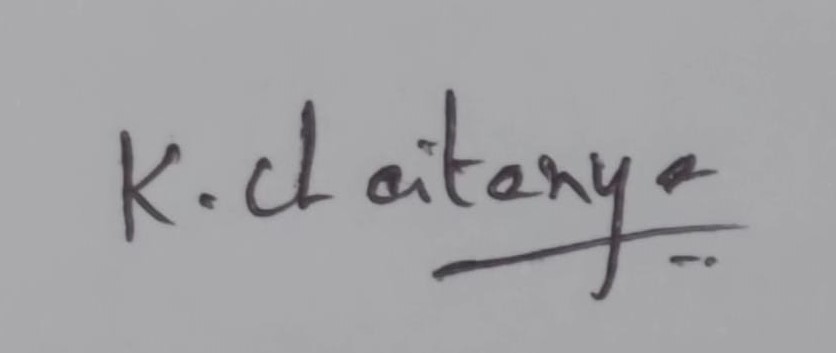 K. Chaitanya